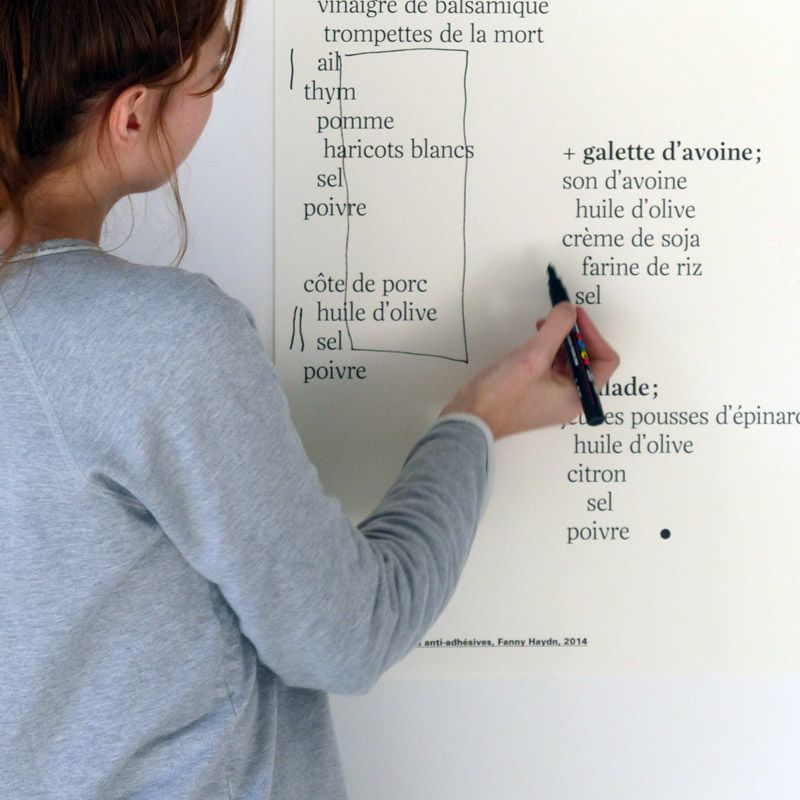 vinaigre de balsamique
trompettes de la mort
ail
thym
pomme
haricots blancs
sel
poivre
côte de porc
huile d'olive
sel
poivre
+ galette d'avoine;
son d'avoine
huile d'olive
crème de soja
farine de riz
sel
pousses d'épinard
huile d'olive
citron
sel
poivre
anti-adhésives, Fanny Haydn, 2014